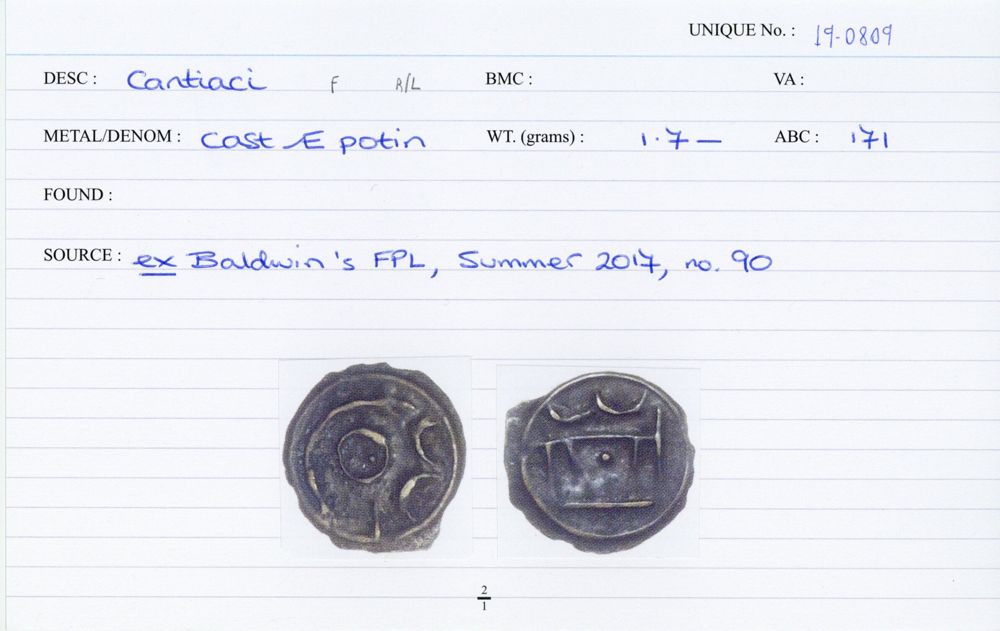 UNIQUE No. : 19-0809
DESC : Cantiaci F R/L BMC : VA :
METAL/DENOM : Cast Æ potin WT. (grams) : 1.7— ABC : 171
FOUND :
SOURCE : ex Baldwin's FPL, Summer 2017, no. 90
2
1